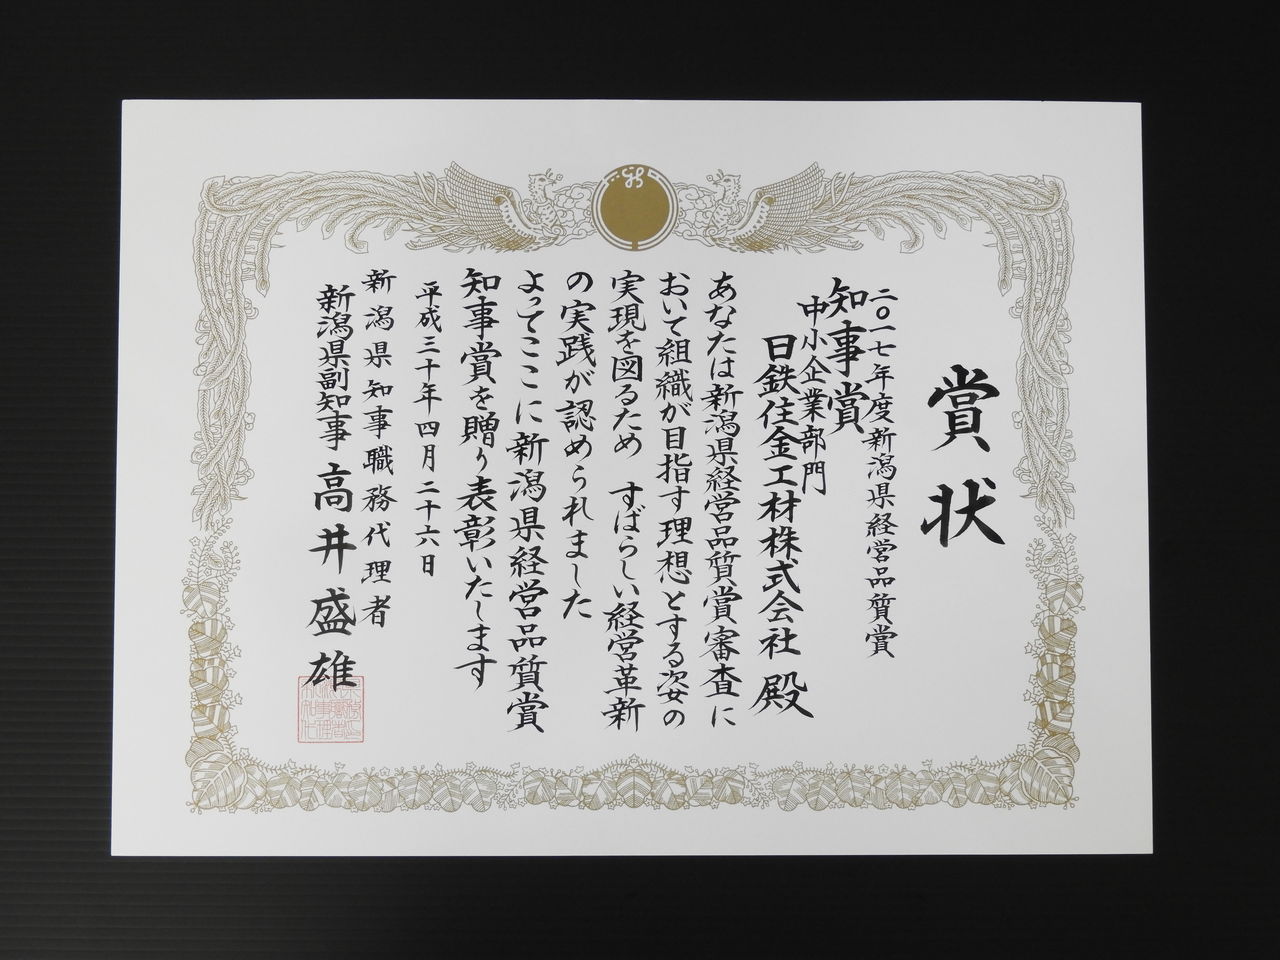 賞状
二〇一七年度新潟県経営品質賞
知事賞
中小企業部門
日鉄住金工材株式会社 殿
あなたは新潟県経営品質賞審査に
おいて組織が目指す理想とする姿の
実現を図るため すばらしい経営革新
の実践が認められました
よってここに新潟県経営品質賞
知事賞を贈り表彰いたします
平成三十年四月二十六日
新潟県知事職務代理者
新潟県副知事 高井盛雄